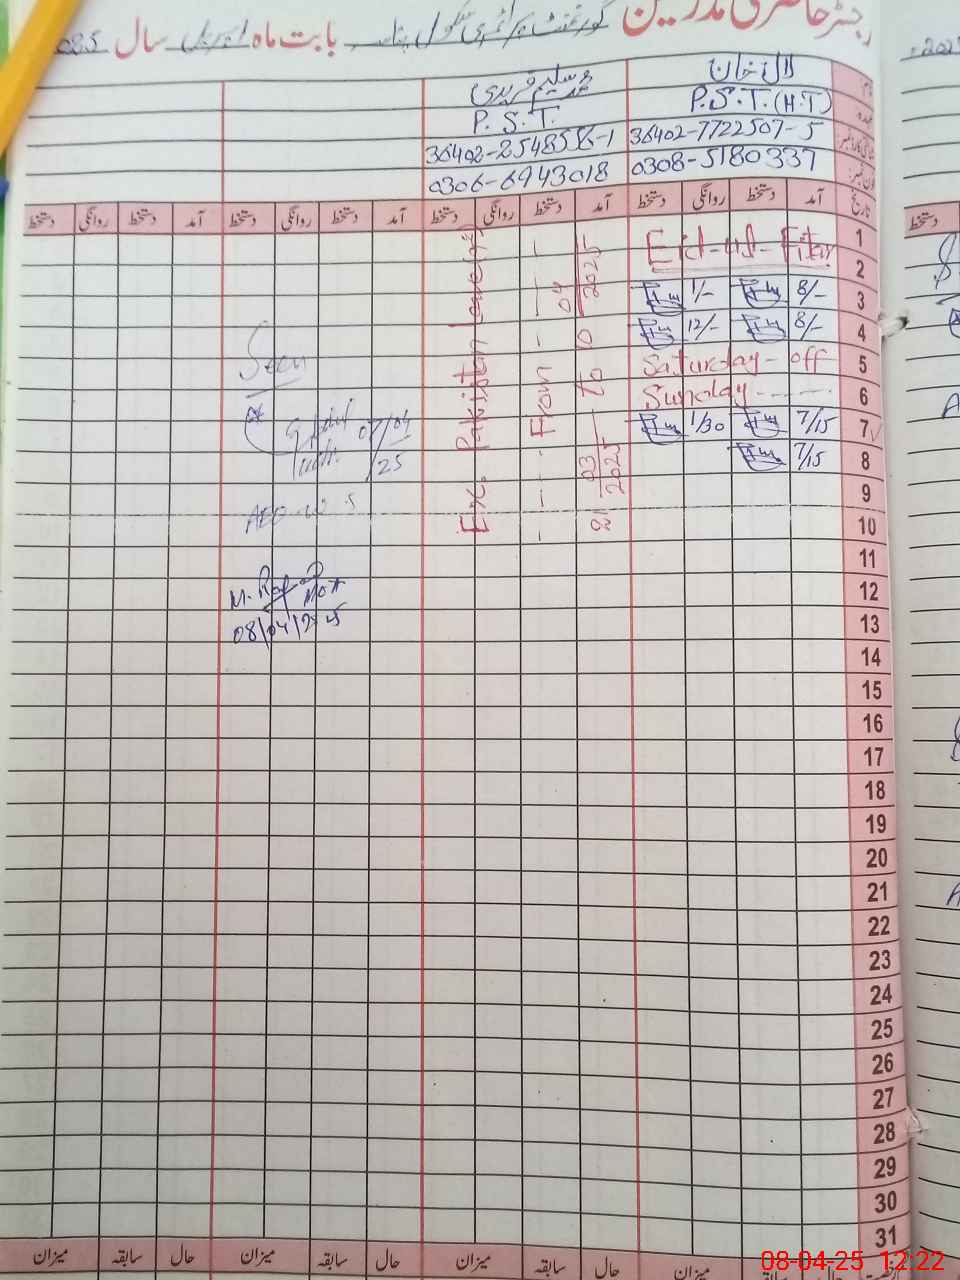 رجسٹر حاضری مدرسین گورنمنٹ پرائمری سکول بابت ماہ اپریل سال
لال خان
محمد سلیم فریدی
P.S.T.(H.T)
P.S.T.
36402-7722507-5
36402-2548556-1
0308-5180337
0306-6943018
تاریخ آمد دستخط روانگی دستخط آمد دستخط روانگی دستخط آمد دستخط روانگی دستخط آمد دستخط روانگی دستخط
1 Eid-ul-Fitar
2
3 8/- 1/-
4 8/- 12/-
5 Saturday - off
6 Sunday - - - -
7 7/15 1/30
8 7/15
9
10
11
12
13
14
15
16
17
18
19
20
21
22
23
24
25
26
27
28
29
30
31
Ex. Pakistan Leave
From
03
2025
to 10
04
2025
Seen
07/04
25
AEO
M. Raf
08/04/25
میزان حال سابقہ میزان حال سابقہ میزان حال سابقہ میزان
08-04-25 12:22